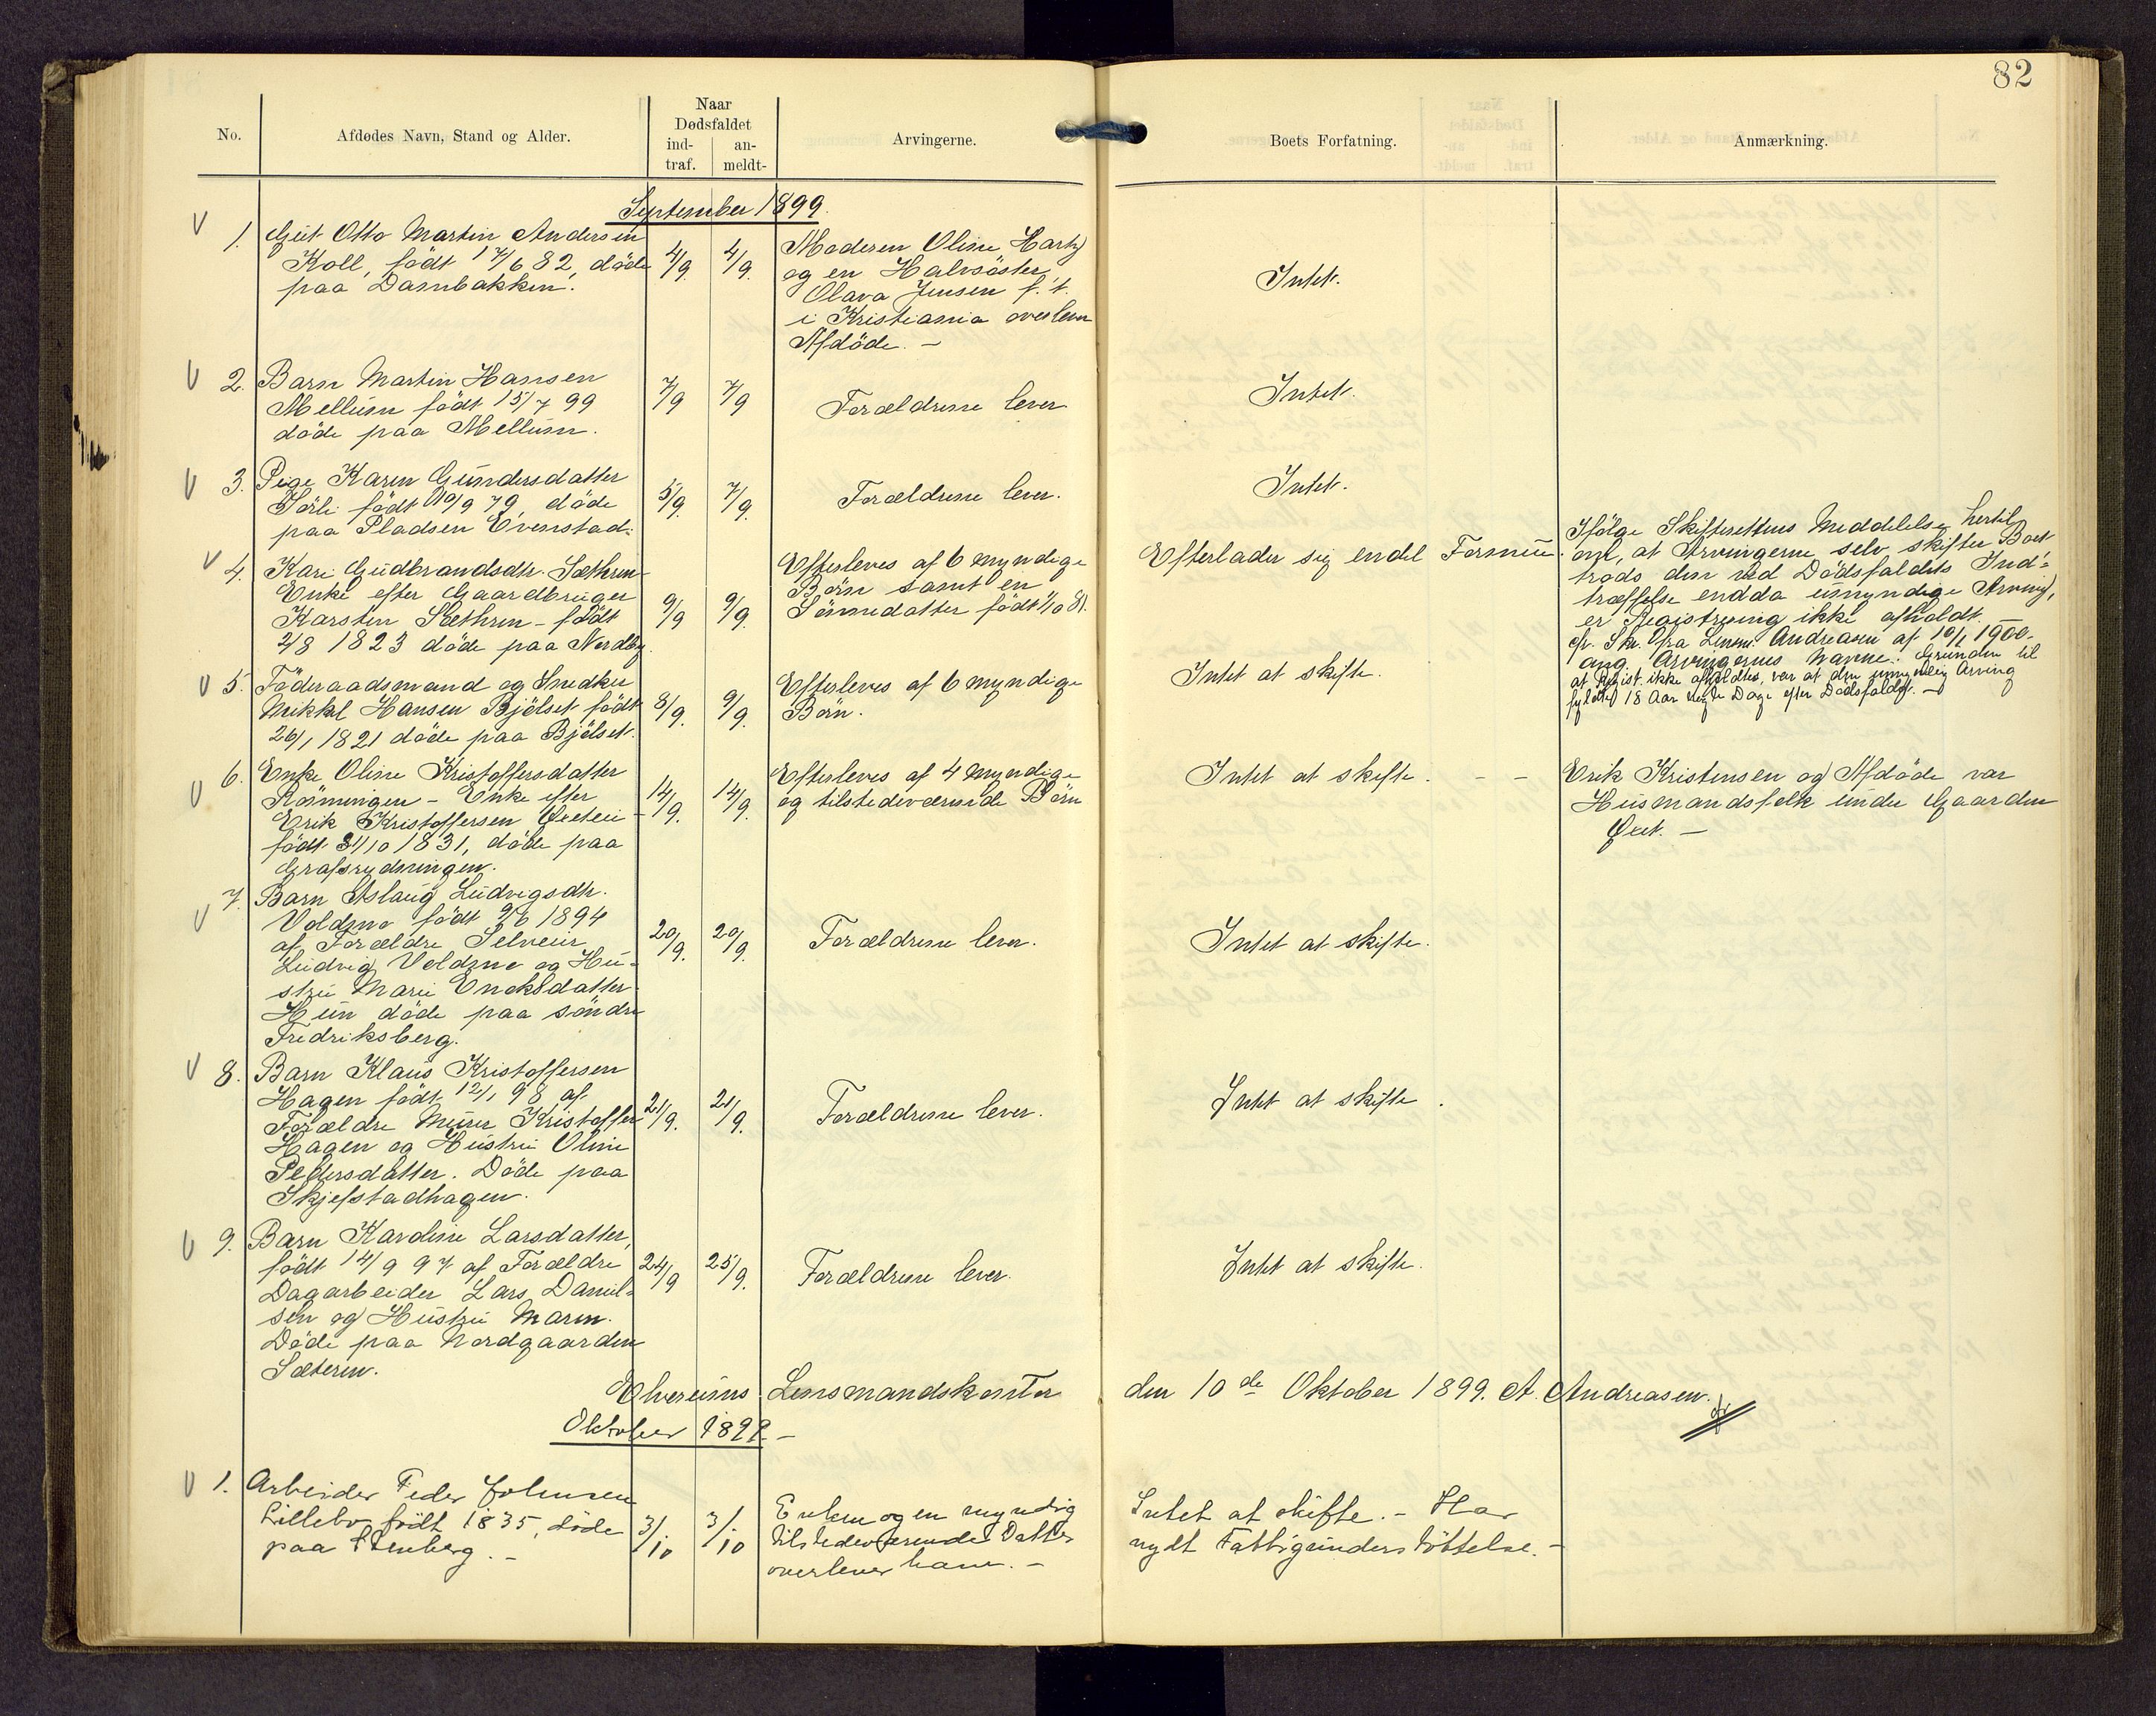 82
No.
Afdødes Navn, Stand og Alder.
Naar
Dødsfaldet
ind-
traf.
an-
meldt-
Arvingerne.
Boets Forfatning.
Anmærkning.
September 1899.
1. Gut Otto Martin Andersen
Koll, født 17/6 82, døde
paa Dambakken.
4/9
4/9.
Moderen Oline Hartz
og en Halvsøster
Olava Jensen f. t.
i Kristiania overlever
Afdøde. -
Intet.
2. Barn Martin Hansen
Mellum født 15/7 99
døde paa Mellum.
7/9
7/9
Forældrene lever
Intet.
3. Pige Karen Gundersdatter
Sørli født 10/9 79, døde
paa Pladsen Evenstad.
5/9.
7/9.
Forældrene lever.
Intet.
4. Kari Gudbrandsdtr. Sæthren
Enke efter Gaardbruger
Karsten Sæthren - født
2/8 1823 døde paa Nordby.
9/9
9/9.
Efterleves af 6 myndige
Børn samt en
Sønnedatter født 1/10 81.
Efterlader sig endel Formue.
Ifølge Skifterettens Meddelelse hertil
om, at Arvingerne selv skifter Boet
trods den ved Dødsfaldets Ind-
træffelse endda umyndige Arving,
er Registrering ikke afholdt.
cfr. Skr. fra Lensm. Andreasen af 10/1 1900
ang. Arvingernes Navne. Grunden til
at Regist. ikke afholdtes, var at den umyndig Arving
fyldte 18 Aar nogle Dage efter Dødsfaldet. -
5. Føderaadsmand og Snedker
Mikkel Hansen Bjølset født
26/1 1821 døde paa Bjølset.
8/9.
9/9.
Efterleves af 6 myndige
Børn.
Intet at skifte.
6. Enke Oline Kristoffersdatter
Rønningen - Enke efter
Erik Kristoffersen
født 31/10 1831, døde paa
Grafsrydningen.
14/9.
14/9.
Efterleves af 4 myndige
og tilstedeværende Børn
Intet at skifte. - -
Erik Kristensen og Afdøde var
Husmandsfolk under Gaarden
7. Barn Aslaug Ludvigsdtr.
Voldmo født 9/6 1894
af Forældre Selveier
Ludvig Voldmo og Hu-
stru Marie Enoksdatter
Hun døde paa søndre
Fredriksberg.
20/9.
20/9.
Forældrene lever.
Intet at skifte.
8. Barn Klaus Kristoffersen
Hagen født 12/1 98 af
Forældre Murer Kristoffer
Hagen og Hustru Oline
Pedersdatter. Døde paa
Skjefstadhagen.
21/9.
21/9.
Forældrene lever.
Intet at skifte.
9. Barn Karoline Larsdatter,
født 14/9 97 af Forældre
Dagarbeider Lars Daniel-
sen og Hustru Maren.
Døde paa Nordgaarden
Sæteren.
24/9
25/9.
Forældrene lever.
Intet at skifte.
Elverums Lensmandskontor den 10de Oktober 1899. A. Andreasen.
Oktober 1899. -
1. Arbeider Peder Johnsen
Lillebo født 1835, døde
paa Stenberg. -
3/10
3/10
Enken og en myndig
tilstedeværende Datter
overlever ham. -
Intet at skifte. - Har
nydt Fattigunderstøttelse. -